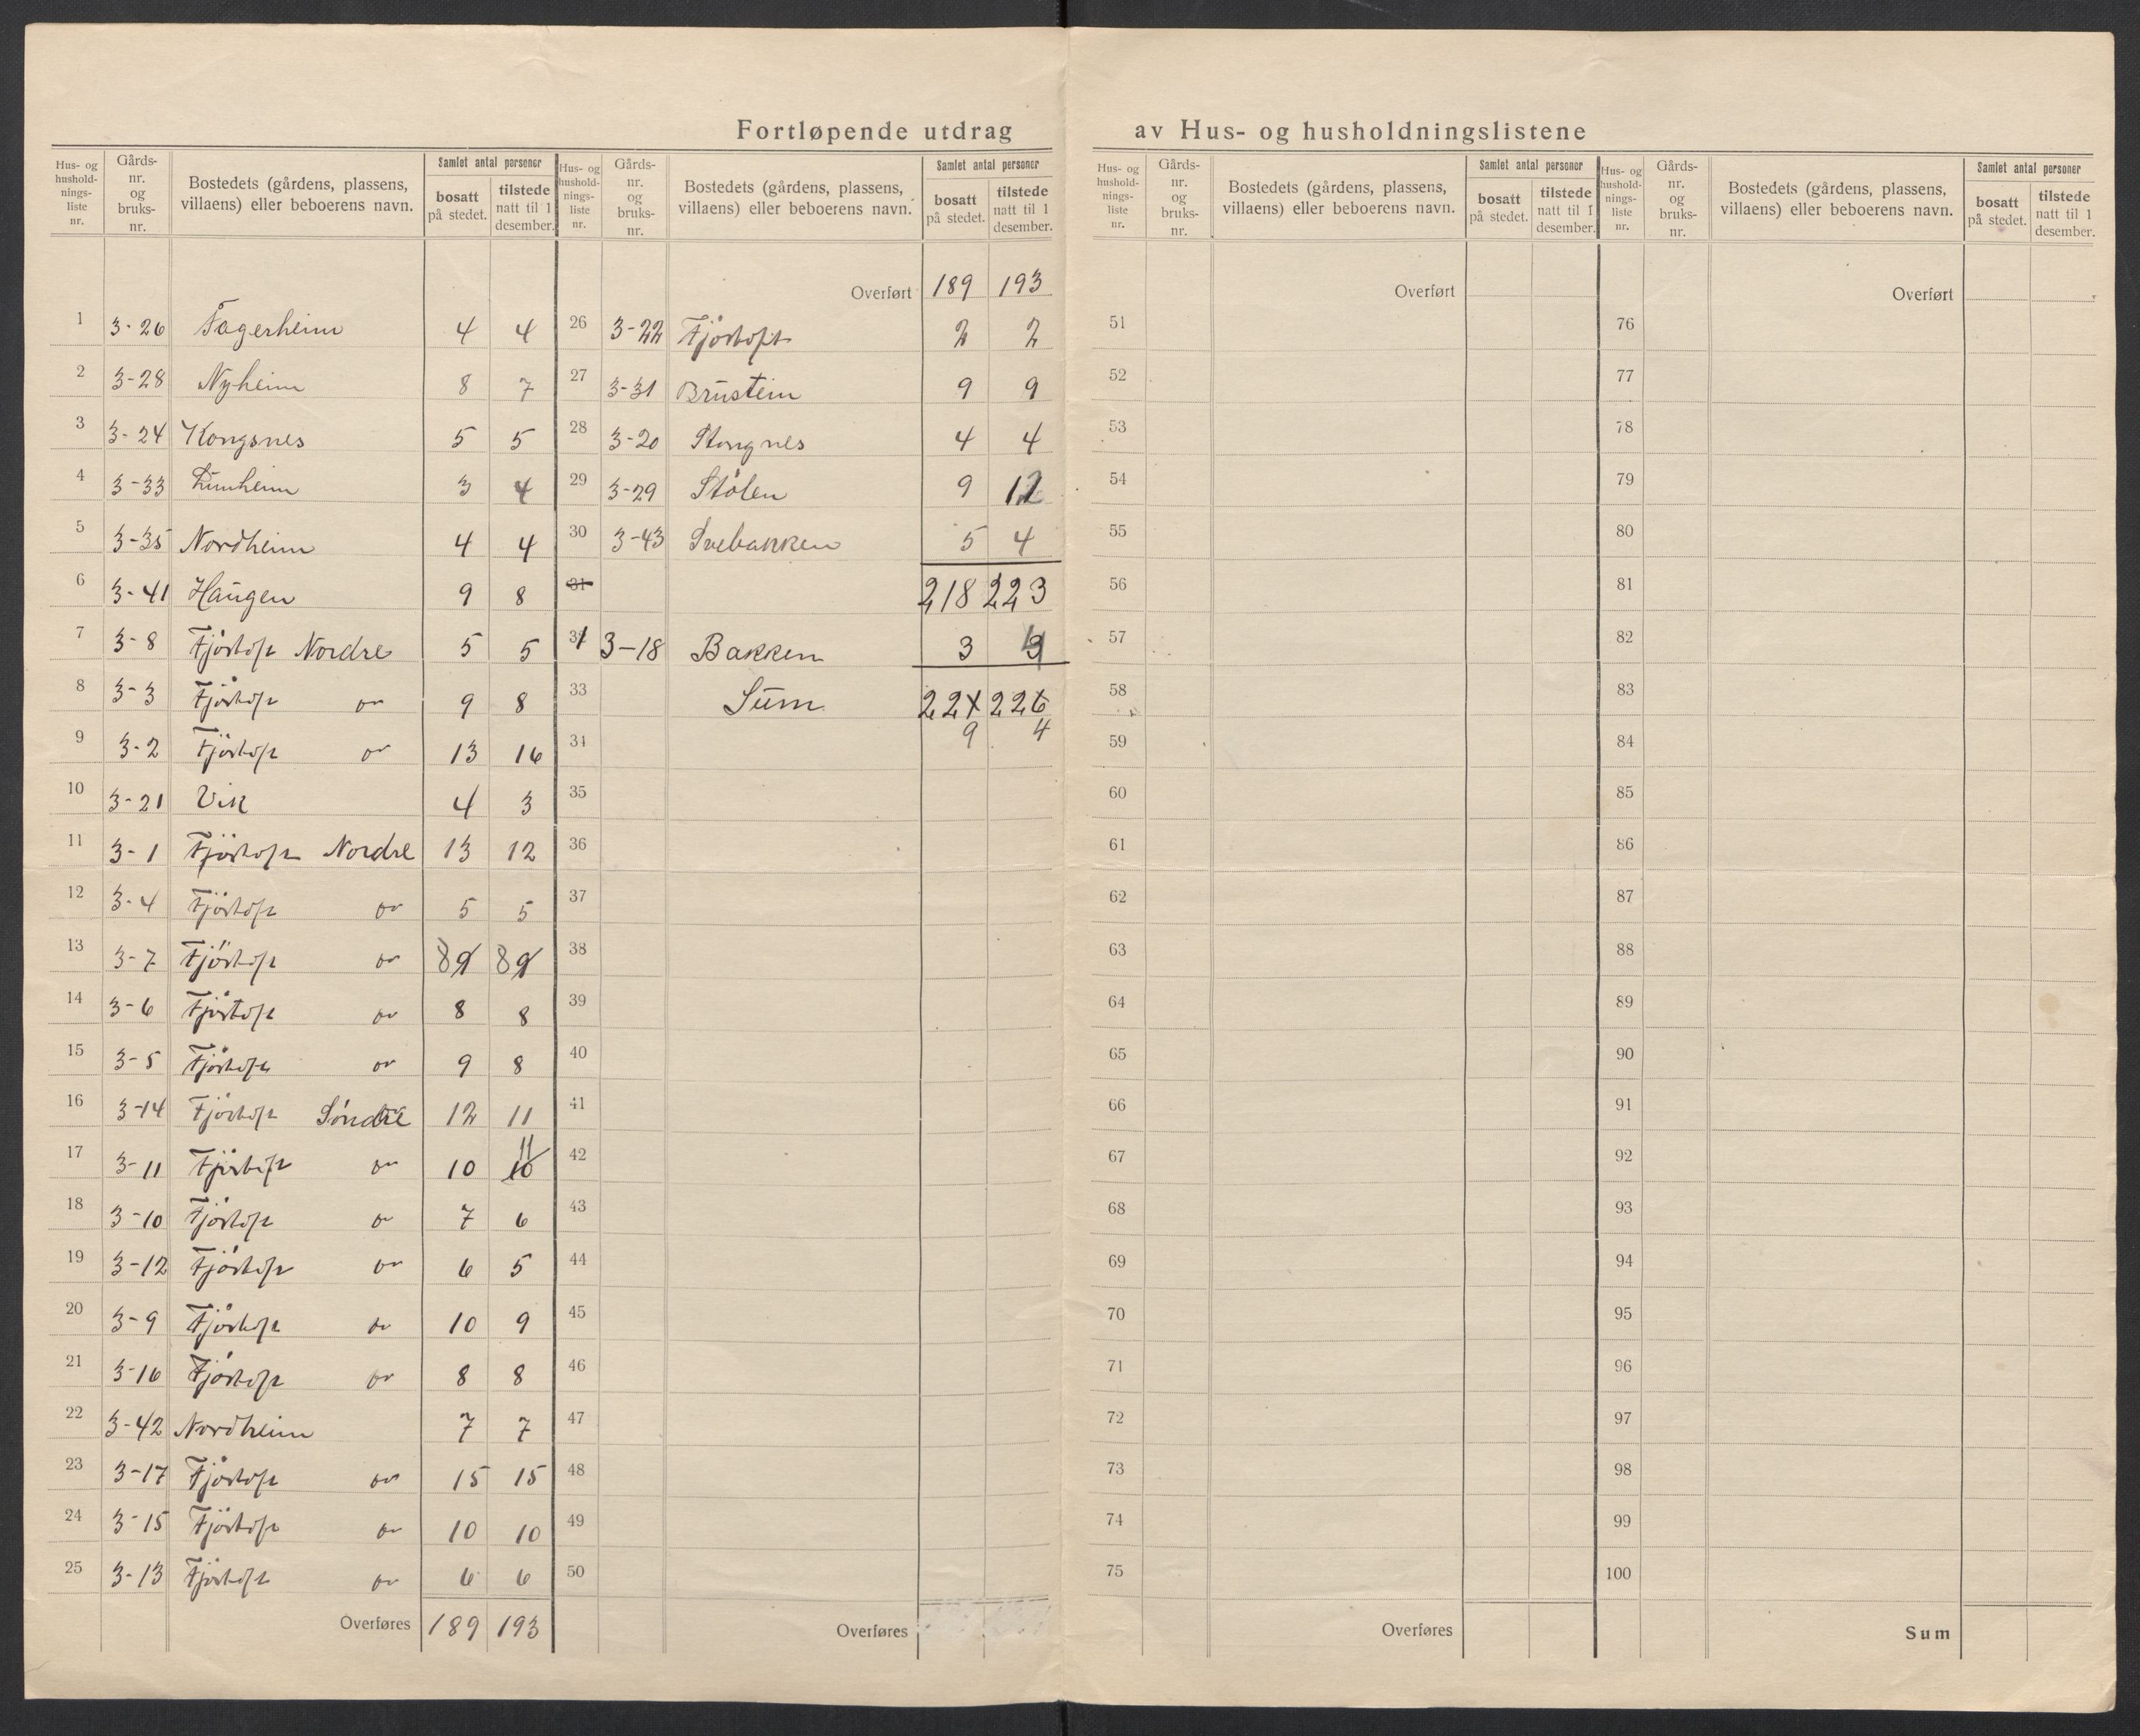 Fortløpende utdrag av Hus- og husholdningslistene
Hus- og husholdnings- liste nr. | Gårds- nr. og bruks- nr. | Bostedets (gårdens, plassens, villaens) eller beboerens navn. | Samlet antal personer | bosatt på stedet. | tilstede natt til 1 desember.
1 3-26 Fagerheim 4 4
2 3-28 Nyheim 8 7
3 3-24 Kongsnes 5 5
4 3-33 Lunheim 3 4
5 3-35 Nordheim 4 4
6 3-41 Haugen 9 8
7 3-8 Fjørtoft Nordre 5 5
8 3-3 Fjørtoft " 9 8
9 3-2 Fjørtoft " 13 16
10 3-21 Vik 4 3
11 3-1 Fjørtoft Nordre 13 12
12 3-4 Fjørtoft " 5 5
13 3-7 Fjørtoft " 8 9 8 9
14 3-6 Fjørtoft " 8 8
15 3-5 Fjørtoft " 9 8
16 3-14 Fjørtoft Søndre 12 11
17 3-11 Fjørtoft " 10 10 11
18 3-10 Fjørtoft " 7 6
19 3-12 Fjørtoft " 6 5
20 3-9 Fjørtoft " 10 9
21 3-16 Fjørtoft " 8 8
22 3-42 Nordheim 7 7
23 3-17 Fjørtoft " 15 15
24 3-15 Fjørtoft " 10 10
25 3-13 Fjørtoft " 6 6
Overføres 189 193
Hus- og husholdnings- liste nr. | Gårds- nr. og bruks- nr. | Bostedets (gårdens, plassens, villaens) eller beboerens navn. | Samlet antal personer | bosatt på stedet. | tilstede natt til 1 desember.
Overført 189 193
26 3-22 Fjørtoft 2 2
27 3-31 Brustein 9 9
28 3-20 Stongnes 4 4
29 3-29 Stølen 9 12
30 3-43 Svebakken 5 4
31 218 223
31 3-18 Bakken 3 4
33 Sum 221 226
34 9 4
35
36
37
38
39
40
41
42
43
44
45
46
47
48
49
50
Overføres
Hus- og husholdnings- liste nr. | Gårds- nr. og bruks- nr. | Bostedets (gårdens, plassens, villaens) eller beboerens navn. | Samlet antal personer | bosatt på stedet. | tilstede natt til 1 desember.
Overført
51
52
53
54
55
56
57
58
59
60
61
62
63
64
65
66
67
68
69
70
71
72
73
74
75
Overføres
Hus- og husholdnings- liste nr. | Gårds- nr. og bruks- nr. | Bostedets (gårdens, plassens, villaens) eller beboerens navn. | Samlet antal personer | bosatt på stedet. | tilstede natt til 1 desember.
Overført
76
77
78
79
80
81
82
83
84
85
86
87
88
89
90
91
92
93
94
95
96
97
98
99
100
Sum